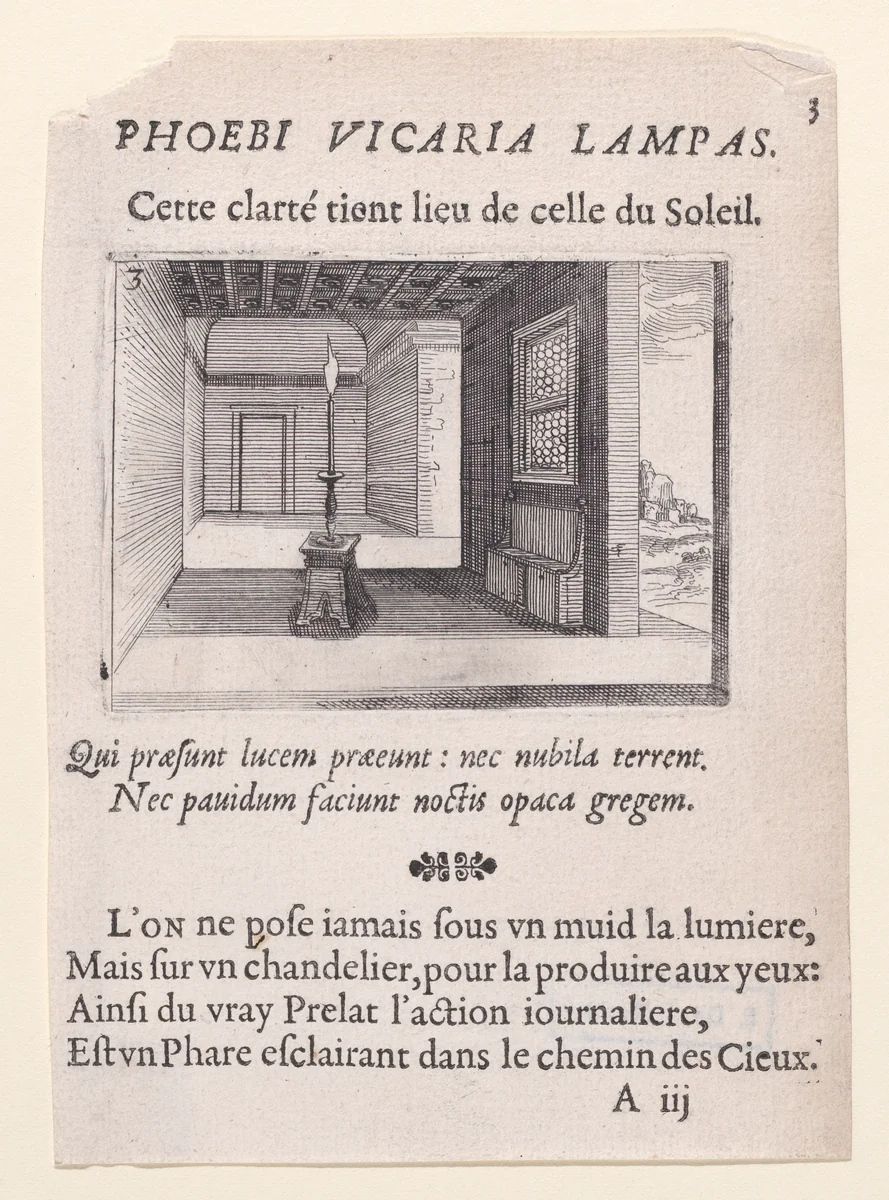 3
PHOEBI VICARIA LAMPAS.
Cette clarté tient lieu de celle du Soleil.
3
Qui præſunt lucem præeunt : nec nubila terrent.
Nec pauidum faciunt noctis opaca gregem.
L'ON ne poſe iamais ſous vn muid la lumiere,
Mais ſur vn chandelier, pour la produire aux yeux:
Ainſi du vray Prelat l'action iournaliere,
Eſt vn Phare eſclairant dans le chemin des Cieux.
A iij